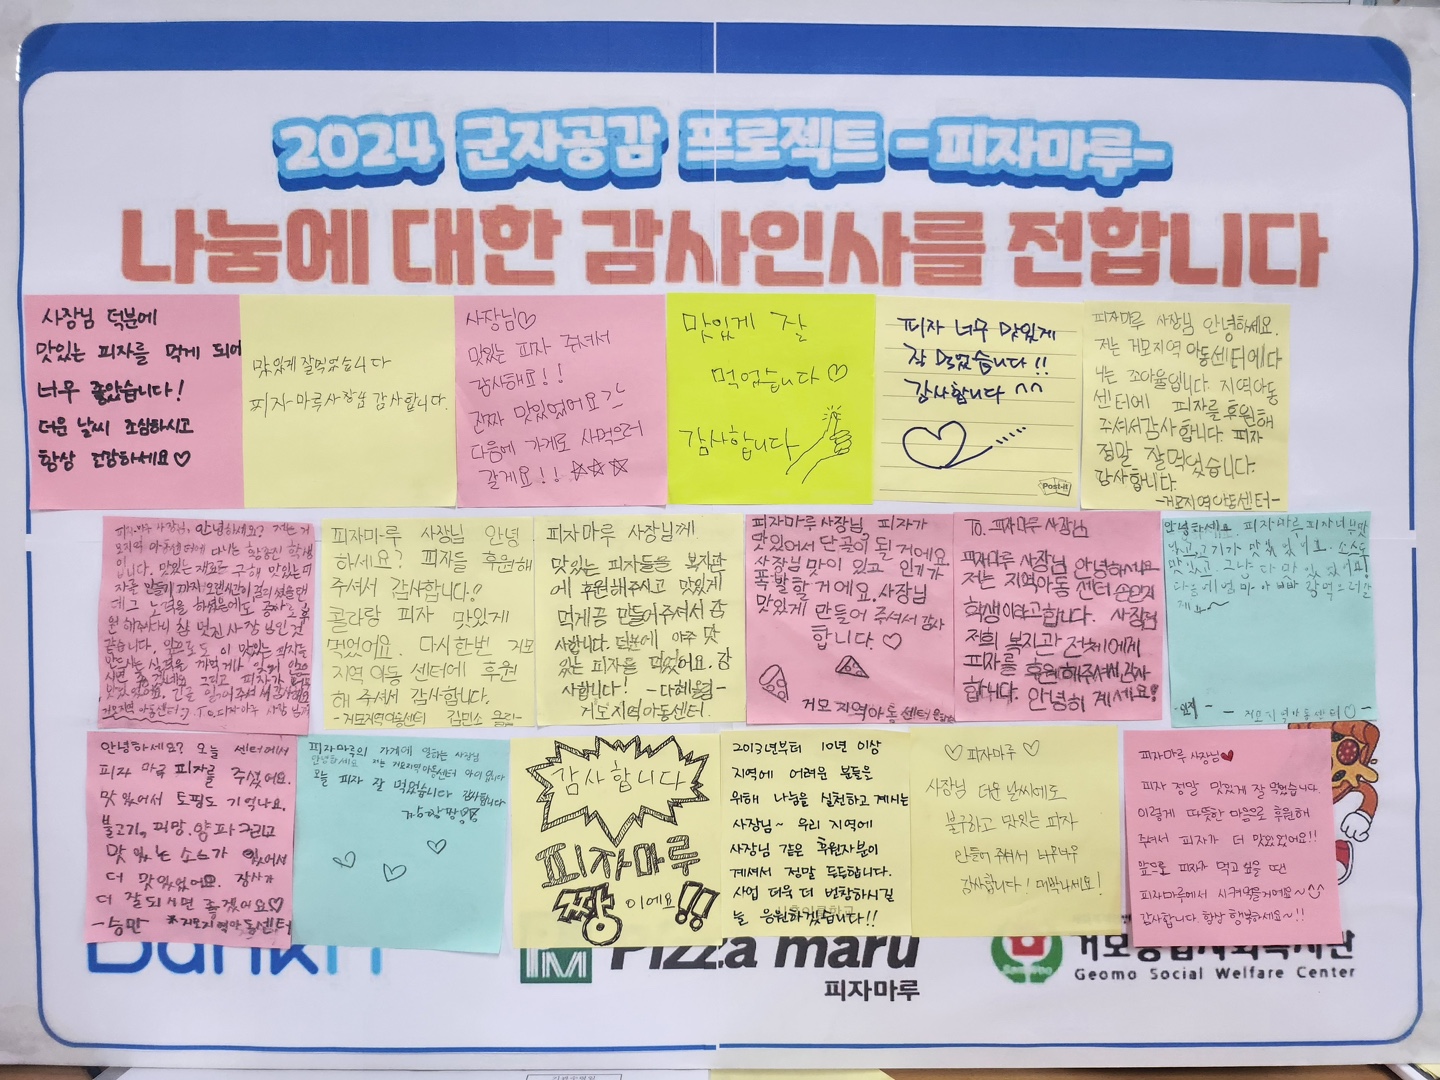 2024 군자공감 프로젝트 -피자마루-
나눔에 대한 감사인사를 전합니다
사장님 덕분에
맛있는 피자를 먹게 되어
너무 좋았습니다!
더운 날씨 조심하시고
항상 건강하세요♡
맛있게 잘먹었습니다
피자마루사장님 감사합니다.
사장님♡
맛있는 피자 주셔서
감사해요!!
진짜 맛있었어요^^
다음에 가게로 사먹으러
갈게요!! ☆☆☆
맛있게 잘
먹었습니다♡
감사합니다
피자 너무 맛있게
잘 먹었습니다!!
감사합니다 ^^
Post-it
피자마루 사장님 안녕하세요.
저는 거모지역아동센터에다
니는 조아율입니다. 지역아동
센터에 피자를 후원해
주셔서감사합니다. 피자
정말 잘먹었습니다.
감사합니다.
-거모지역아동센터-
피자마루 사장님, 안녕하세요? 저는 거
모지역 아동센터에 다니는 학생
입니다. 맛있는 재료를 구해 맛있는 피
자를 만들기 까지 오랜시간이
데 그 노력을 하셨음에도
원 해주시다니 참 멋진 사장님인것
같습니다. 앞으로도 이 맛있는 피자를
거모지역 아동센터
피자마루 사장님 안녕
하세요? 피자를 후원해
주셔서 감사합니다!!
콜라랑 피자 맛있게
먹었어요. 다시한번 거모
지역 아동 센터에 후원
해 주셔서 감사합니다.
-거모지역아동센터 김민소 올림-
피자마루 사장님께
맛있는 피자들을 복지관
에 후원해주시고 맛있게
먹게끔 만들어주셔서 감
사합니다. 덕분에 아주 맛
있는 피자를 먹었어요. 감
사합니다! -다혜올림-
거모지역아동센터.
피자마루사장님, 피자가
맛있어서 단골이 될 거에요
사장님 맛이 있고 인기가
폭발할 거에요. 사장님
맛있게 만들어 주셔서 감사
합니다. ♡
거모 지역아동센터
To. 피자마루 사장님
피자마루 사장님 안녕하세요
저는 지역아동 센터
학생이라고합니다. 사장님
저희 복지관 전체에게
피자를 후원해주셔서 감사
합니다. 안녕히 계세요!
안녕하세요. 피자마루피자너무맛
있고 고기가 맛있
맛있고 그냥 다 맛있
다음에 엄마 아빠
거모지역아동센터♡-
안녕하세요? 오늘 센터에서
피자 마루 피자를 주셨어요.
맛있어서 토핑도 기억나요.
불고기, 피망, 양파 그리고
맛있는 소스가 있어서
더 맛있었어요. 장사가
더 잘되시면 좋겠어요♡
-승민 *거모지역아동센터
피자마루의 가게에 일하는 사장님
안녕하세요 저는 거모지역아동센터 아이입니다
오늘 피자 잘 먹었습니다 감사합니다
감사합니다
피자마루
짱이에요!!
2013년부터 10년 이상
지역에 어려운 분들을
위해 나눔을 실천하고 계시는
사장님~ 우리 지역에
사장님 같은 후원자분이
계셔서 정말 든든합니다.
사업 더욱 더 번창하시길
늘 응원하겠습니다!!
♡ 피자마루 ♡
사장님 더운 날씨에도
불구하고 맛있는 피자
만들어 주셔서 너무너무
감사합니다! 대박나세요!
피자마루 사장님♥
피자 정말 맛있게 잘 먹었습니다.
이렇게 따뜻한 마음으로 후원해
주셔서 피자가 더 맛있었어요!!
앞으로 피자 먹고 싶을 땐
피자마루에서 시켜먹을거에요~^^
감사합니다. 항상 행복하세요~!!
Pizza maru
피자마루
거모종합사회복지관
Geomo Social Welfare Center